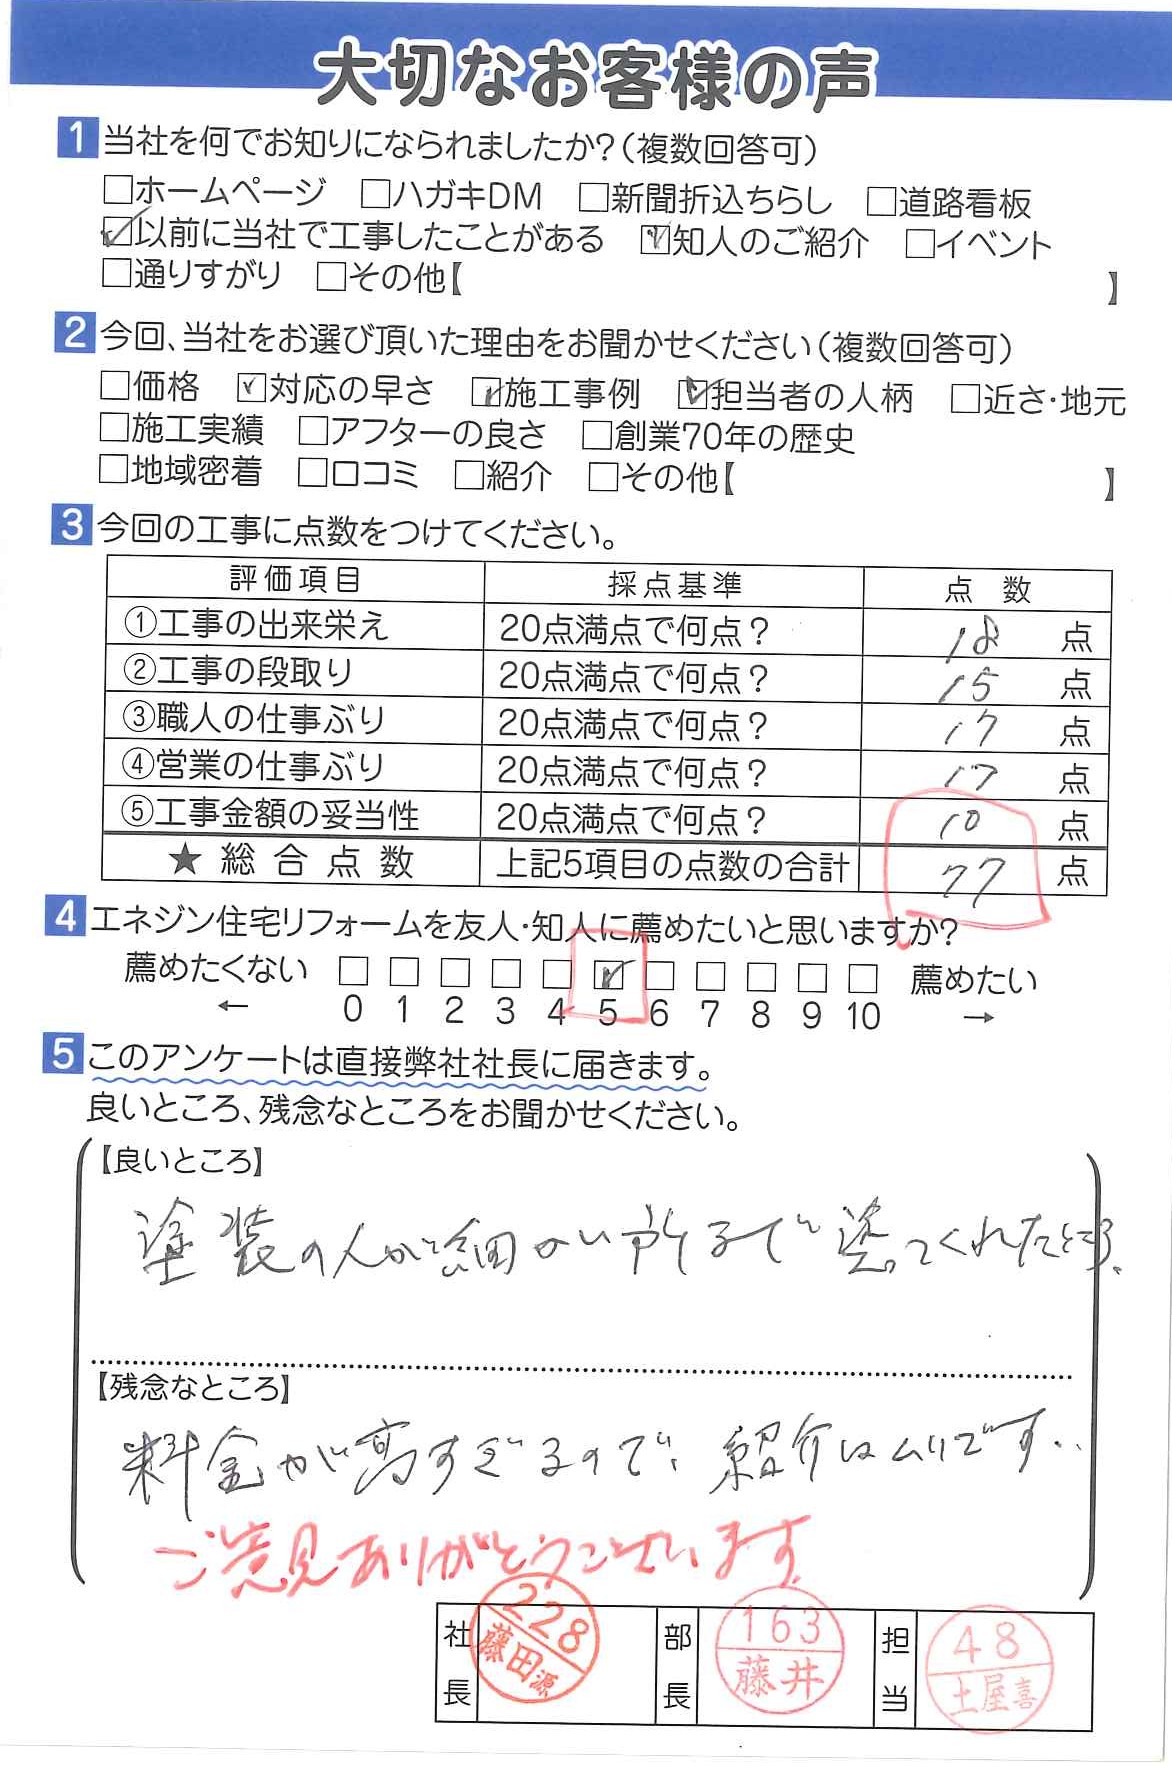 大切なお客様の声
1 当社を何でお知りになられましたか?(複数回答可)
□ホームページ □ハガキDM □新聞折込ちらし □道路看板
☑以前に当社で工事したことがある ☑知人のご紹介 □イベント
□通りすがり □その他【 】
2 今回、当社をお選び頂いた理由をお聞かせください(複数回答可)
□価格 ☑対応の早さ ☑施工事例 ☑担当者の人柄 □近さ・地元
□施工実績 □アフターの良さ □創業70年の歴史
□地域密着 □口コミ □紹介 □その他【 】
3 今回の工事に点数をつけてください。
評価項目 採点基準 点数
①工事の出来栄え 20点満点で何点? 18 点
②工事の段取り 20点満点で何点? 15 点
③職人の仕事ぶり 20点満点で何点? 17 点
④営業の仕事ぶり 20点満点で何点? 17 点
⑤工事金額の妥当性 20点満点で何点? 10 点
★総合点数 上記5項目の点数の合計 77 点
4 エネジン住宅リフォームを友人・知人に薦めたいと思いますか?
薦めたくない □ □ □ □ □ ☑ □ □ □ □ □ 薦めたい
← 0 1 2 3 4 5 6 7 8 9 10 →
5 このアンケートは直接弊社社長に届きます。
良いところ、残念なところをお聞かせください。
【良いところ】
塗装の人が細かい所まで塗ってくれたところ、
【残念なところ】
料金が高すぎるので、紹介はムリです..
ご意見ありがとうございます。
社長 228 藤田源 部長 163 藤井 担当 48 土屋喜